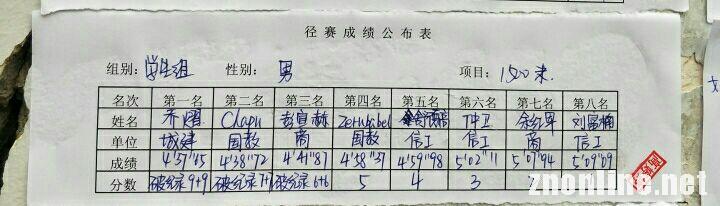 径赛成绩公布表
组别: 学生组 性别: 男 项目: 1500米
名次 第一名 第二名 第三名 第四名 第五名 第六名 第七名 第八名
姓名 乔 Chapu 彭宜赫 仲卫 刘昌楠
单位 城建 国教 商 国教 信工 信工 商 信工
成绩 4'37"15 4'38"72 4'41"87 4'58"37 4'59"98 5'02"11 5'07"94 5'09"09
分数 破纪录9+9 破纪录7+7 破纪录6+6 5 4 3
znonline.net